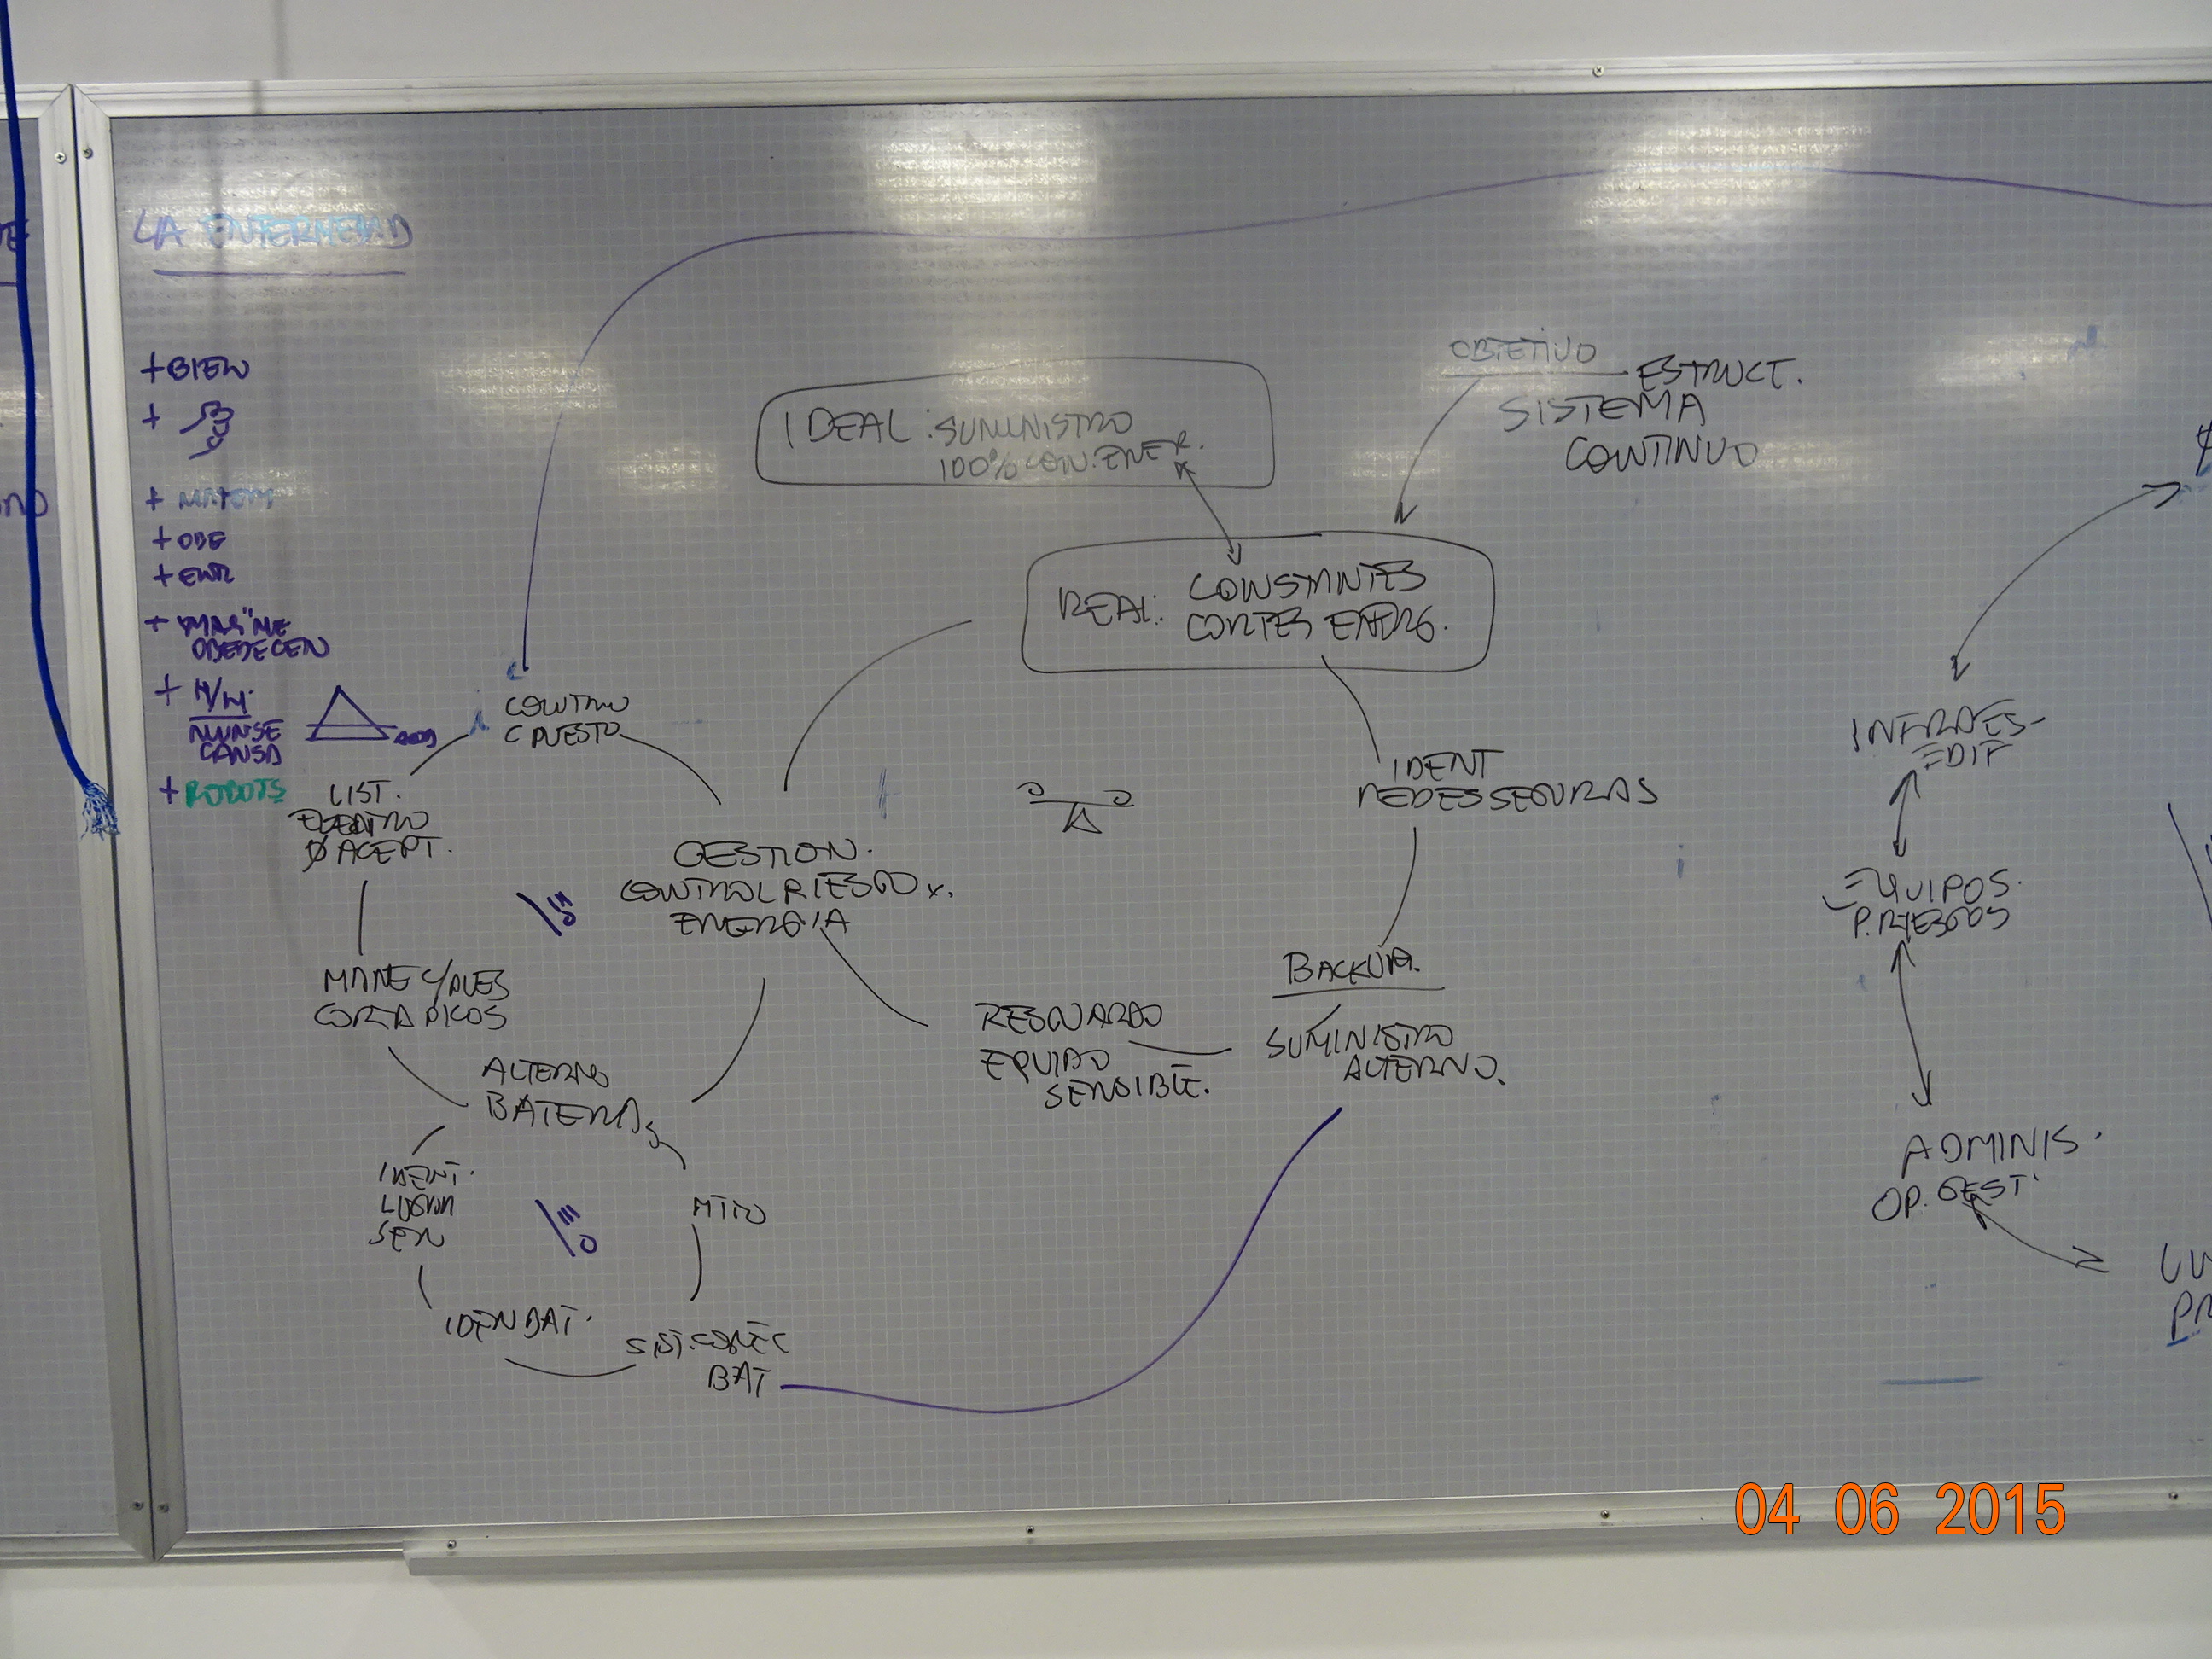 LA ENFERMEDAD
+ BIEN
+
+ ODE
+ "ME
OBEDECEN
+ H/M.
NUN SE
CANSA
+ ROBOTS
IDEAL: SUMINISTRO
100% CON. ENER.
OBJETIVO
ESTRUCT.
SISTEMA
CONTINUO
REAL: CONSTANTES
CORTES ENERG.
CONTRO
C PUESTO
LIST.
ACEPT.
GESTION.
CONTROL RIESGO x.
ENERGIA
IDENT
REDES SEGURAS
BACKUP.
SUMINISTRO
ALTERNO.
RESGUARDO
EQUIPO
SENSIBLE.
CORTA PICOS
ALTERNO
BATERIAS
IDENT.
LUGAR
SEN
MTTO
IDEN BAT.
SIST. CONEC
BAT
INFRAES-
EDIF
EQUIPOS.
P. RIESGOS
ADMINIS.
OP. GEST.
04 06 2015